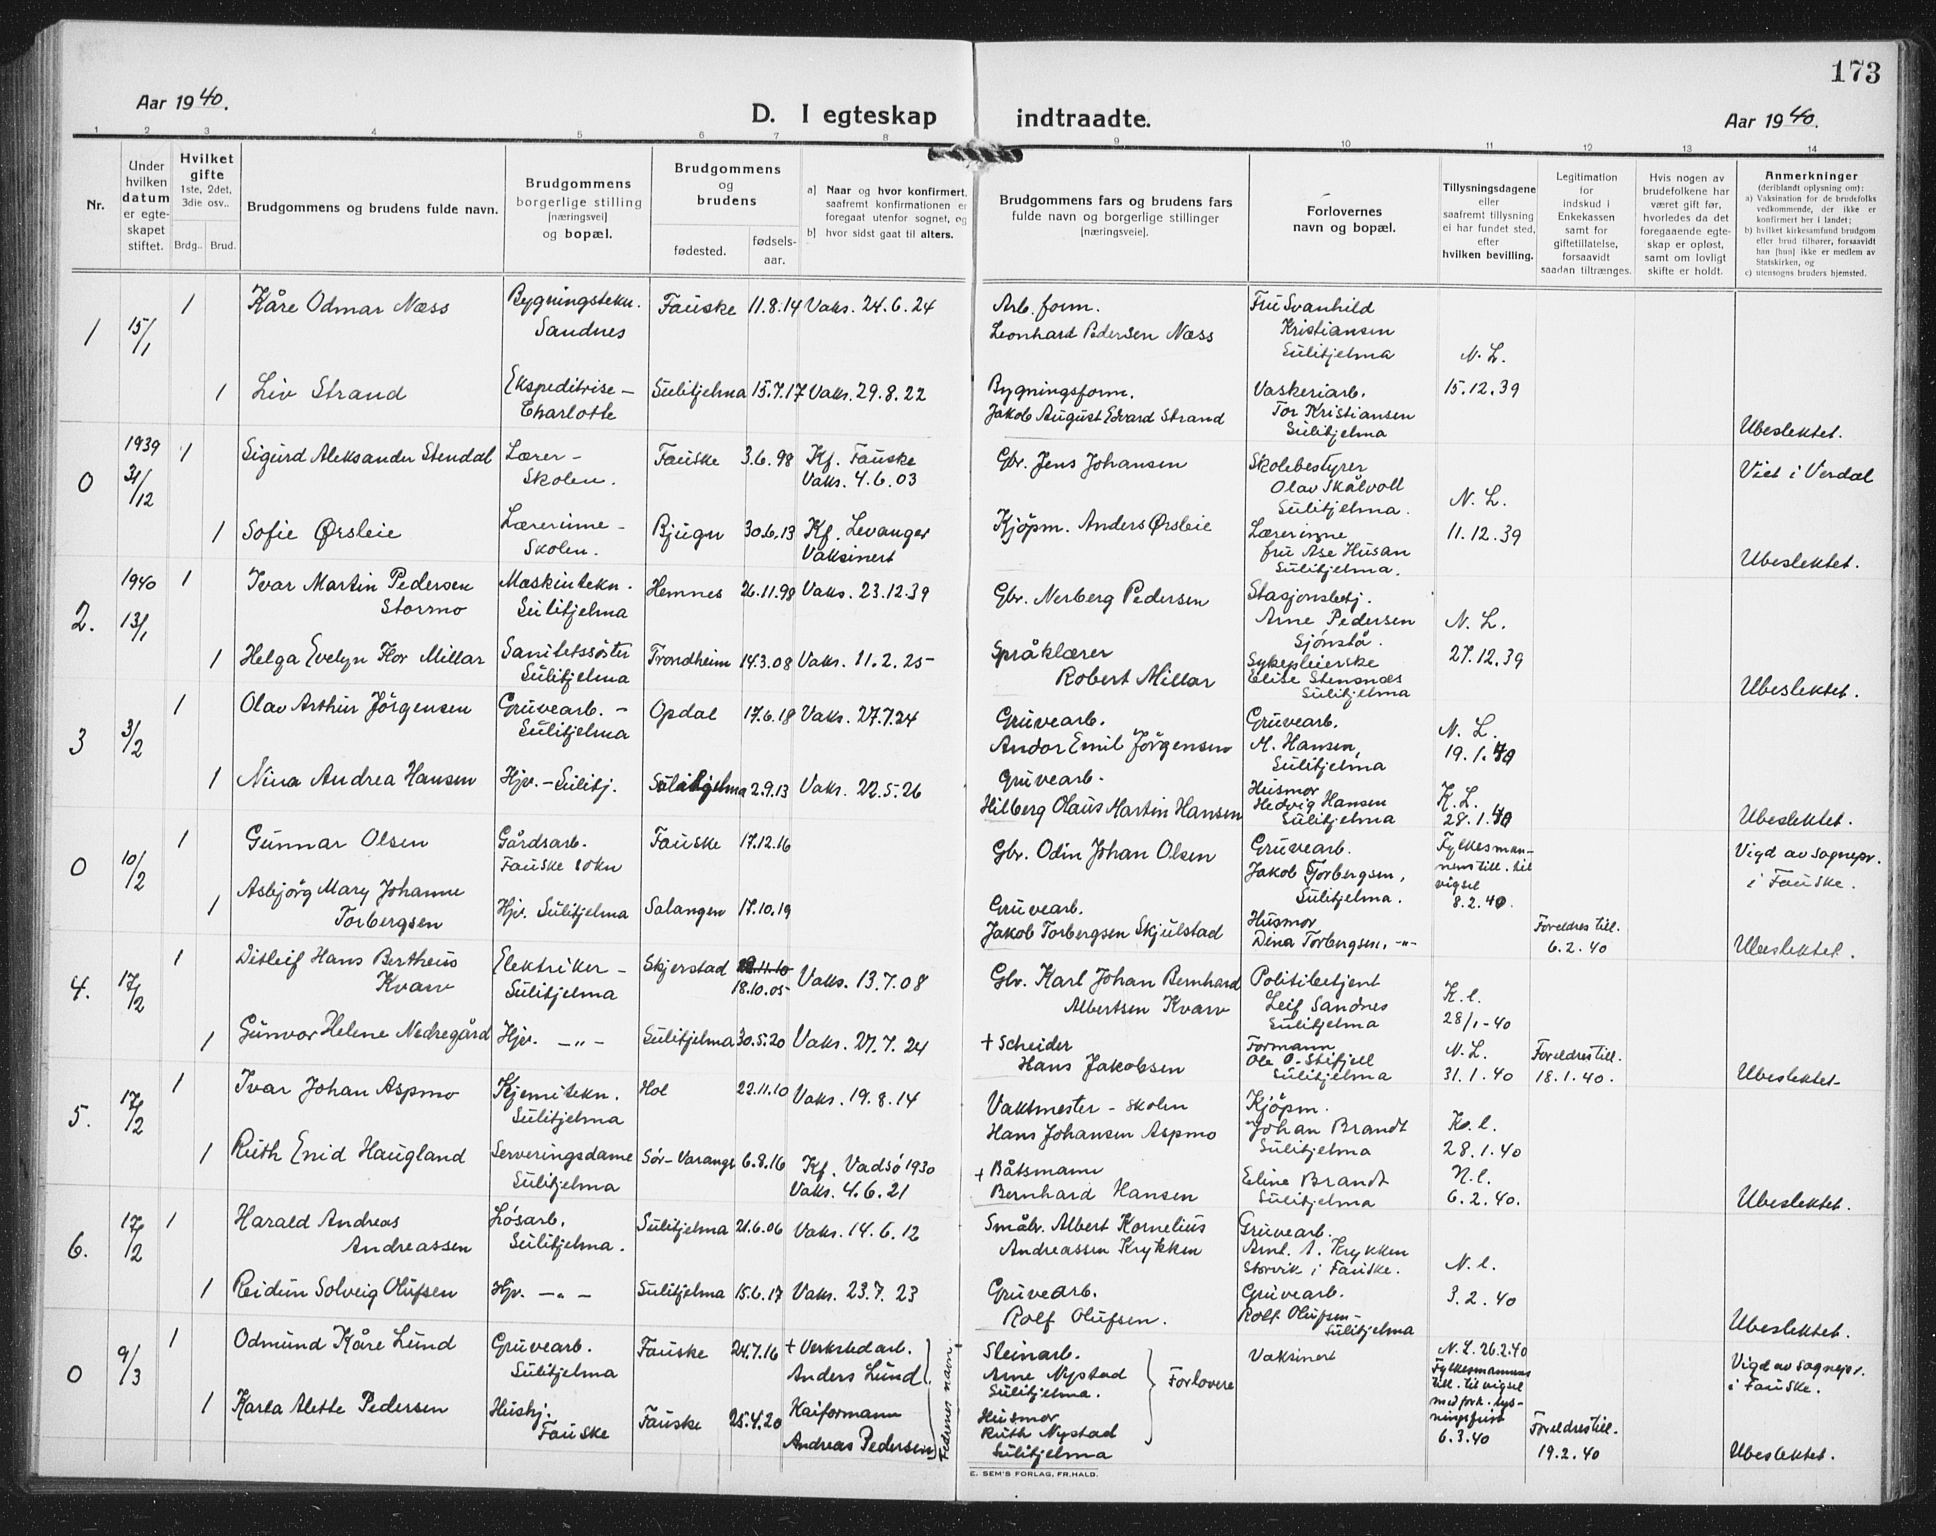 173
Aar 1940.
D. I egteskap indtraadte.
Aar 1940.
1 2 3 4 5 6 7 8 9 10 11 12 13 14
Nr.
Under hvilken datum er egte-skapet stiftet.
Hvilket gifte 1ste, 2det, 3die osv..
Brdg.. Brud.
Brudgommens og brudens fulde navn.
Brudgommens borgerlige stilling (næringsvei) og bopæl.
Brudgommens og brudens
fødested.
fødsels-aar.
a) Naar og hvor konfirmert, saafremt konfirmationen er foregaat utenfor sognet, og
b) hvor sidst gaat til alters.
Brudgommens fars og brudens fars fulde navn og borgerlige stillinger [næringsveie].
Forlovernes navn og bopæl.
Tillysningsdagene eller saafremt tillysning ei har fundet sted, efter hvilken bevilling.
Legitimation for indskud i Enkekassen samt for giftetillatelse, forsaavidt saadan tiltrænges.
Hvis nogen av brudefolkene har været gift før, hvorledes da det foregaaende egte-skap er opløst, samt om lovligt skifte er holdt.
Anmerkninger (deriblandt oplysning om): a) Vaksination for de brudefolks vedkommende, der ikke er konfirmert her i landet; b) hvilket kirkesamfund brudgom eller brud tilhører, forsaavidt han [hun] ikke er medlem av Statskirken, og c) utensogns bruders hjemsted.
1 15/1 1 Kåre Odmar Næss Bygningstekn. Sandnes Fauske 11.8.14 Vaks. 24.6.24 Arb.form. Leonhard Pedersen Næss Fru Svanhild Kristiansen Sulitjelma N. L.
1 Liv Strand Ekspeditrise - Charlotte Sulitjelma 15.7.17 Vaks. 29.8.22 Bygningsform. Jakob August Edvard Strand Vaskeriarb. Tor Kristiansen Sulitjelma 15.12.39 Ubeslektet.
0 1939 31/12 1 Sigurd Aleksander Stendal Lærer - Skolen. Fauske 3.6.98 Kf. Fauske Vaks. 4.6.03 Gbr. Jens Johansen Skolebestyrer Olav Skålvoll Sulitjelma. N. L. Viet i Verdal
1 Sofie Ørsleie Lærerinne - Skolen. Bjugn 30.6.13 Kf. Levanger Vaksinert Kjöpm. Anders Ørsleie Lærerinne fru Åse Husan Sulitjelma. 11.12.39 Ubeslektet.
2. 1940 13/1 1 Ivar Martin Pedersen Stormo Maskintekn. Sulitjelma Hemnes 26.11.98 Vaks. 23.12.39 Gbr. Nerberg Pedersen Stasjonsbetj. Arne Pedersen Sjönstå. N. L.
1 Helga Evelyn Flor Millar Sanitetssöster Sulitjelma Trondheim 14.3.08 Vaks. 11.2.25 - Språklærer Robert Millar Sykepleierske Elise Stensnæs Sulitjelma 27.12.39 Ubeslektet.
3 3/2 1 Olav Arthur Jörgensen Gruvearb. - Sulitjelma Opdal 17.6.18 Vaks. 27.7.24 Gruvearb. Andor Emil Jörgensen Gruvearb. M. Hansen, Sulitjelma N. L. 19.1.40
1 Nina Andrea Hansen Hjv. - Sulitj. Sulitjelma 2.9.13 Vaks. 22.5.26 Gruvearb. Hilberg Olaus Martin Hansen Husmor Hedvig Hansen Sulitjelma K. L. 28.1.40 Ubeslektet.
0 10/2 1 Gunnar Olsen Gårdsarb. Fauske sokn Fauske 17.12.16 Gbr. Odin Johan Olsen Gruvearb. Jakob Torbergsen, Sulitjelma. Fylkesmannens till. til vigsel 8.2.40. Vigd av sognepr. i Fauske.
1 Asbjörg Mary Johanne Torbergsen Hjv. Sulitjelma Salangen 17.10.19 Gruvearb. Jakob Torbergsen Skjulstad Husmor Dina Torbergsen, -"- Foreldres till. 6.2.40 Ubeslektet.
4. 17/2 1 Ditleif Hans Bertheus Kvarv Elektriker - Sulitjelma Skjerstad 18.10.05 - Vaks. 13.7.08 Gbr. Karl Johan Bernhard Albertsen Kvarv Politibetjent Leif Sandnes Sulitjelma K. l. 28/1-40
1 Gunvor Helene Nedregård Hjv. -"- Sulitjelma 30.5.20 Vaks. 27.7.24 + Scheider Hans Jakobsen Formann Ole O. Stifjell Sulitjelma N. L. 31.1.40 Foreldres till. 18.1.40. Ubeslektet
5. 17/2 1 Ivar Johan Aspmo Kjemitekn. Sulitjelma Hol 22.11.10 Vaks. 19.8.14 Vaktmester - skolen Hans Johansen Aspmo Kjöpm. Johan Brandt Sulitjelma K. l. 28.1.40
1 Ruth Enid Haugland Serveringsdame Sulitjelma Sör-Varanger 6.8.16 Kf. Vadsö 1930 Vaks. 4.6.21 + Båtsmann Bernhard Hansen Eline Brandt Sulitjelma N. l. 6.2.40. Ubeslektet.
6. 17/2 1 Harald Andreas Andreassen Lösarb. Sulitjelma. Sulitjelma 21.6.06 Vaks. 14.6.12 Småbr. Albert Kornelius Andreassen Krykken Gruvearb. Arnl. A. Krykken Storvik i Fauske. N. l.
1 Reidun Solveig Olufsen Hjv. -"- Sulitjelma 15.6.17 Vaks. 23.7.23 Gruvearb. Rolf Olufsen. Gruvearb. Rolf Olufsen - Sulitjelma 3.2.40 Ubeslektet.
0 9/3 1 Odmund Kåre Lund Gruvearb. Sulitjelma Fauske 24.7.16 + Verkstedarb. Anders Lund Fedrenes navn. Steinarb. Arne Nystad Sulitjelma. Forlovere Vaksinert N. L. 26.2.40 Fylkesmannens till. til vigsel med fork. lysningsfrist 6.3.40 Vigd av sognepr. i Fauske.
1 Karla Alette Pedersen Hushj. Fauske Fauske 25.4.20 Kaiformann Andreas Pedersen Husmor Ruth Nystad Sulitjelma Foreldres till. 19.2.40 Ubeslektet.
E. SEM'S FORLAG, FR.HALD.